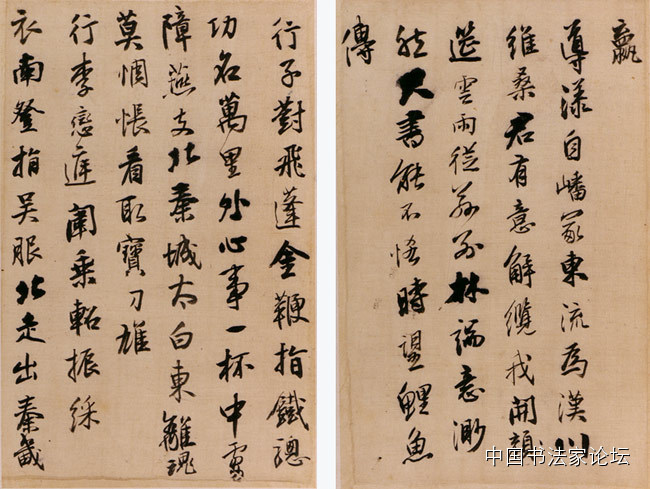 嬴
導漾自嶓冢東流為漢川
維桑君有意解纜我開顏
筵雲雨從茲別林端意渺
然尺書能不悋時望鯉魚
傳
行子對飛蓬金鞭指鐵驄
功名萬里外心事一杯中虜
障燕支北秦城太白東離魂
莫惆悵看取寶刀雄
行李戀庭闈乘軺振綵
衣南登指吳服北走出秦畿
中国书法家论坛